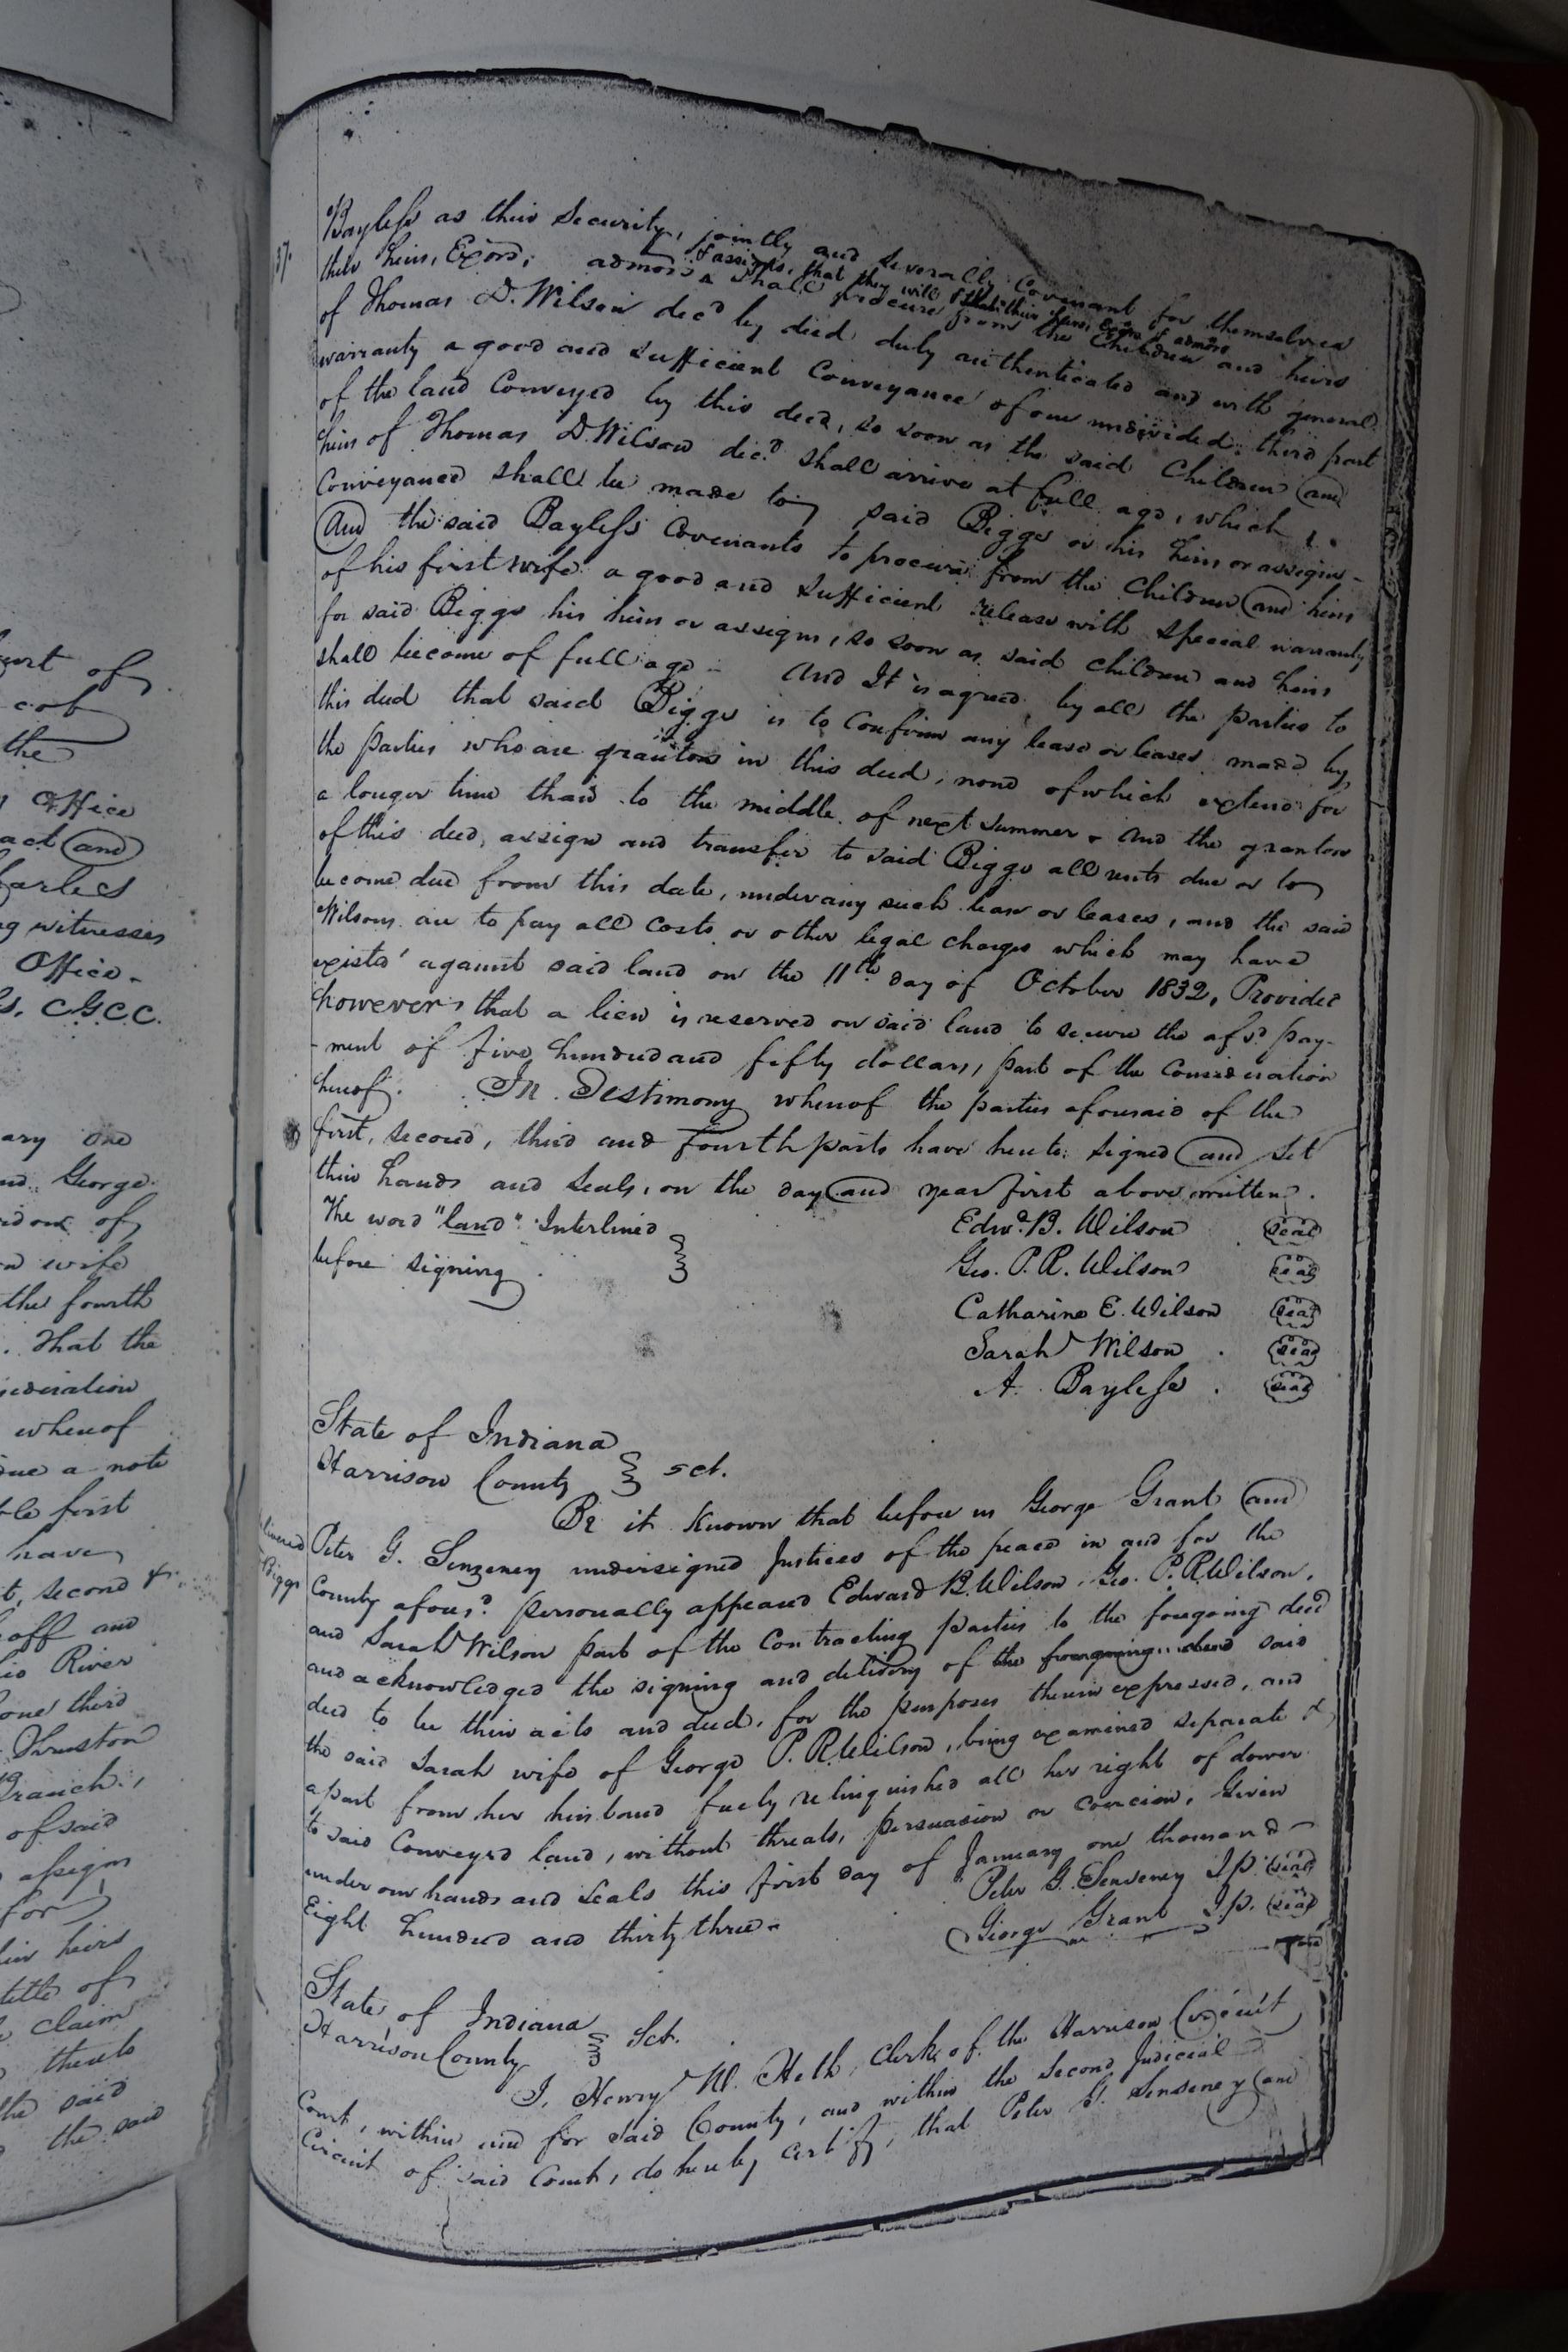 urt of
cot
the
Office
act and
harles
ng witnesses
Office -
s. CGCC.
ary one
nd. George
idow of
n wife
the fourth
. That the
sideration
whereof
due a note
first
have
t, second &
off and
io River
one third
Thruston
Branch,
of said
assigns
for
heirs
title of
claim
thereto
the said
the said
Bayless as their Security, jointly and severally Covenant for themselves
their heirs, Exors, admors & assigns, that they will & that their heirs Exors & admors
shall procure from the Children and heirs
of Thomas D. Wilson decd by deed duly authenticated and with general
warranty a good and sufficient Conveyance of one undivided third part
of the land Conveyed by this deed, so soon as the said Children and
heirs of Thomas D. Wilson decd shall arrive at full age, which
Conveyance shall be made to said Biggs or his heirs or assigns -
And the said Bayless Covenants to procure from the Children and heirs
of his first wife a good and sufficient release with special warranty
for said Biggs his heirs or assigns, so soon as said children and heirs
shall become of full age - And It is agreed by all the parties to
this deed that said Biggs is to Confirm any lease or leases made by
the parties who are grantors in this deed, none of which extend for
a longer time than to the middle of next summer - And the grantors
of this deed, assign and transfer to said Biggs all rents due or to
become due from this date, under any such lease or leases, and the said
Wilsons are to pay all costs or other legal charges which may have
existed against said land on the 11th day of October 1832, Provided
however that a lien is reserved on said land to secure the afsd pay-
-ment of five hundred and fifty dollars, part of the Consideration
hereof. In Testimony whereof the parties aforesaid of the
first, second, third and fourth parts have hereto signed and set
their hands and seals, on the day and year first above written.
The word "land" Interlined
before signing.
Edwd. B. Wilson seal
Geo. P. R. Wilson seal
Catharine E. Wilson seal
Sarah Wilson . seal
A. Bayless . seal
State of Indiana
Harrison County sct.
Be it Known that before us George Grant and
Peter G. Senzeney undersigned Justices of the peace in and for the
County aforesd. personally appeared Edward B. Wilson, Geo. P. R. Wilson,
and Sarah Wilson part of the Contracting parties to the foregoing deed
and acknowledged the signing and delivery of the foregoing deed said
deed to be their acts and deed, for the purposes therein expressed, and
the said Sarah wife of George P. R. Wilson, being examined separate &
apart from her husband freely relinquished all her right of dower
to said Conveyed land, without threats, persuasion or coercion, Given
under our hands and Seals this first day of January one thousand
Eight hundred and thirty three -
Peter G. Senseney J.P. seal
George Grant J.P. seal
Biggs
State of Indiana
Harrison County Sct.
I, Henry W. Heth Clerk of the Harrison Circuit
Court, within and for said County, and within the Second Judicial
Circuit of said Court, do hereby certify, that Peter G. Senseney and